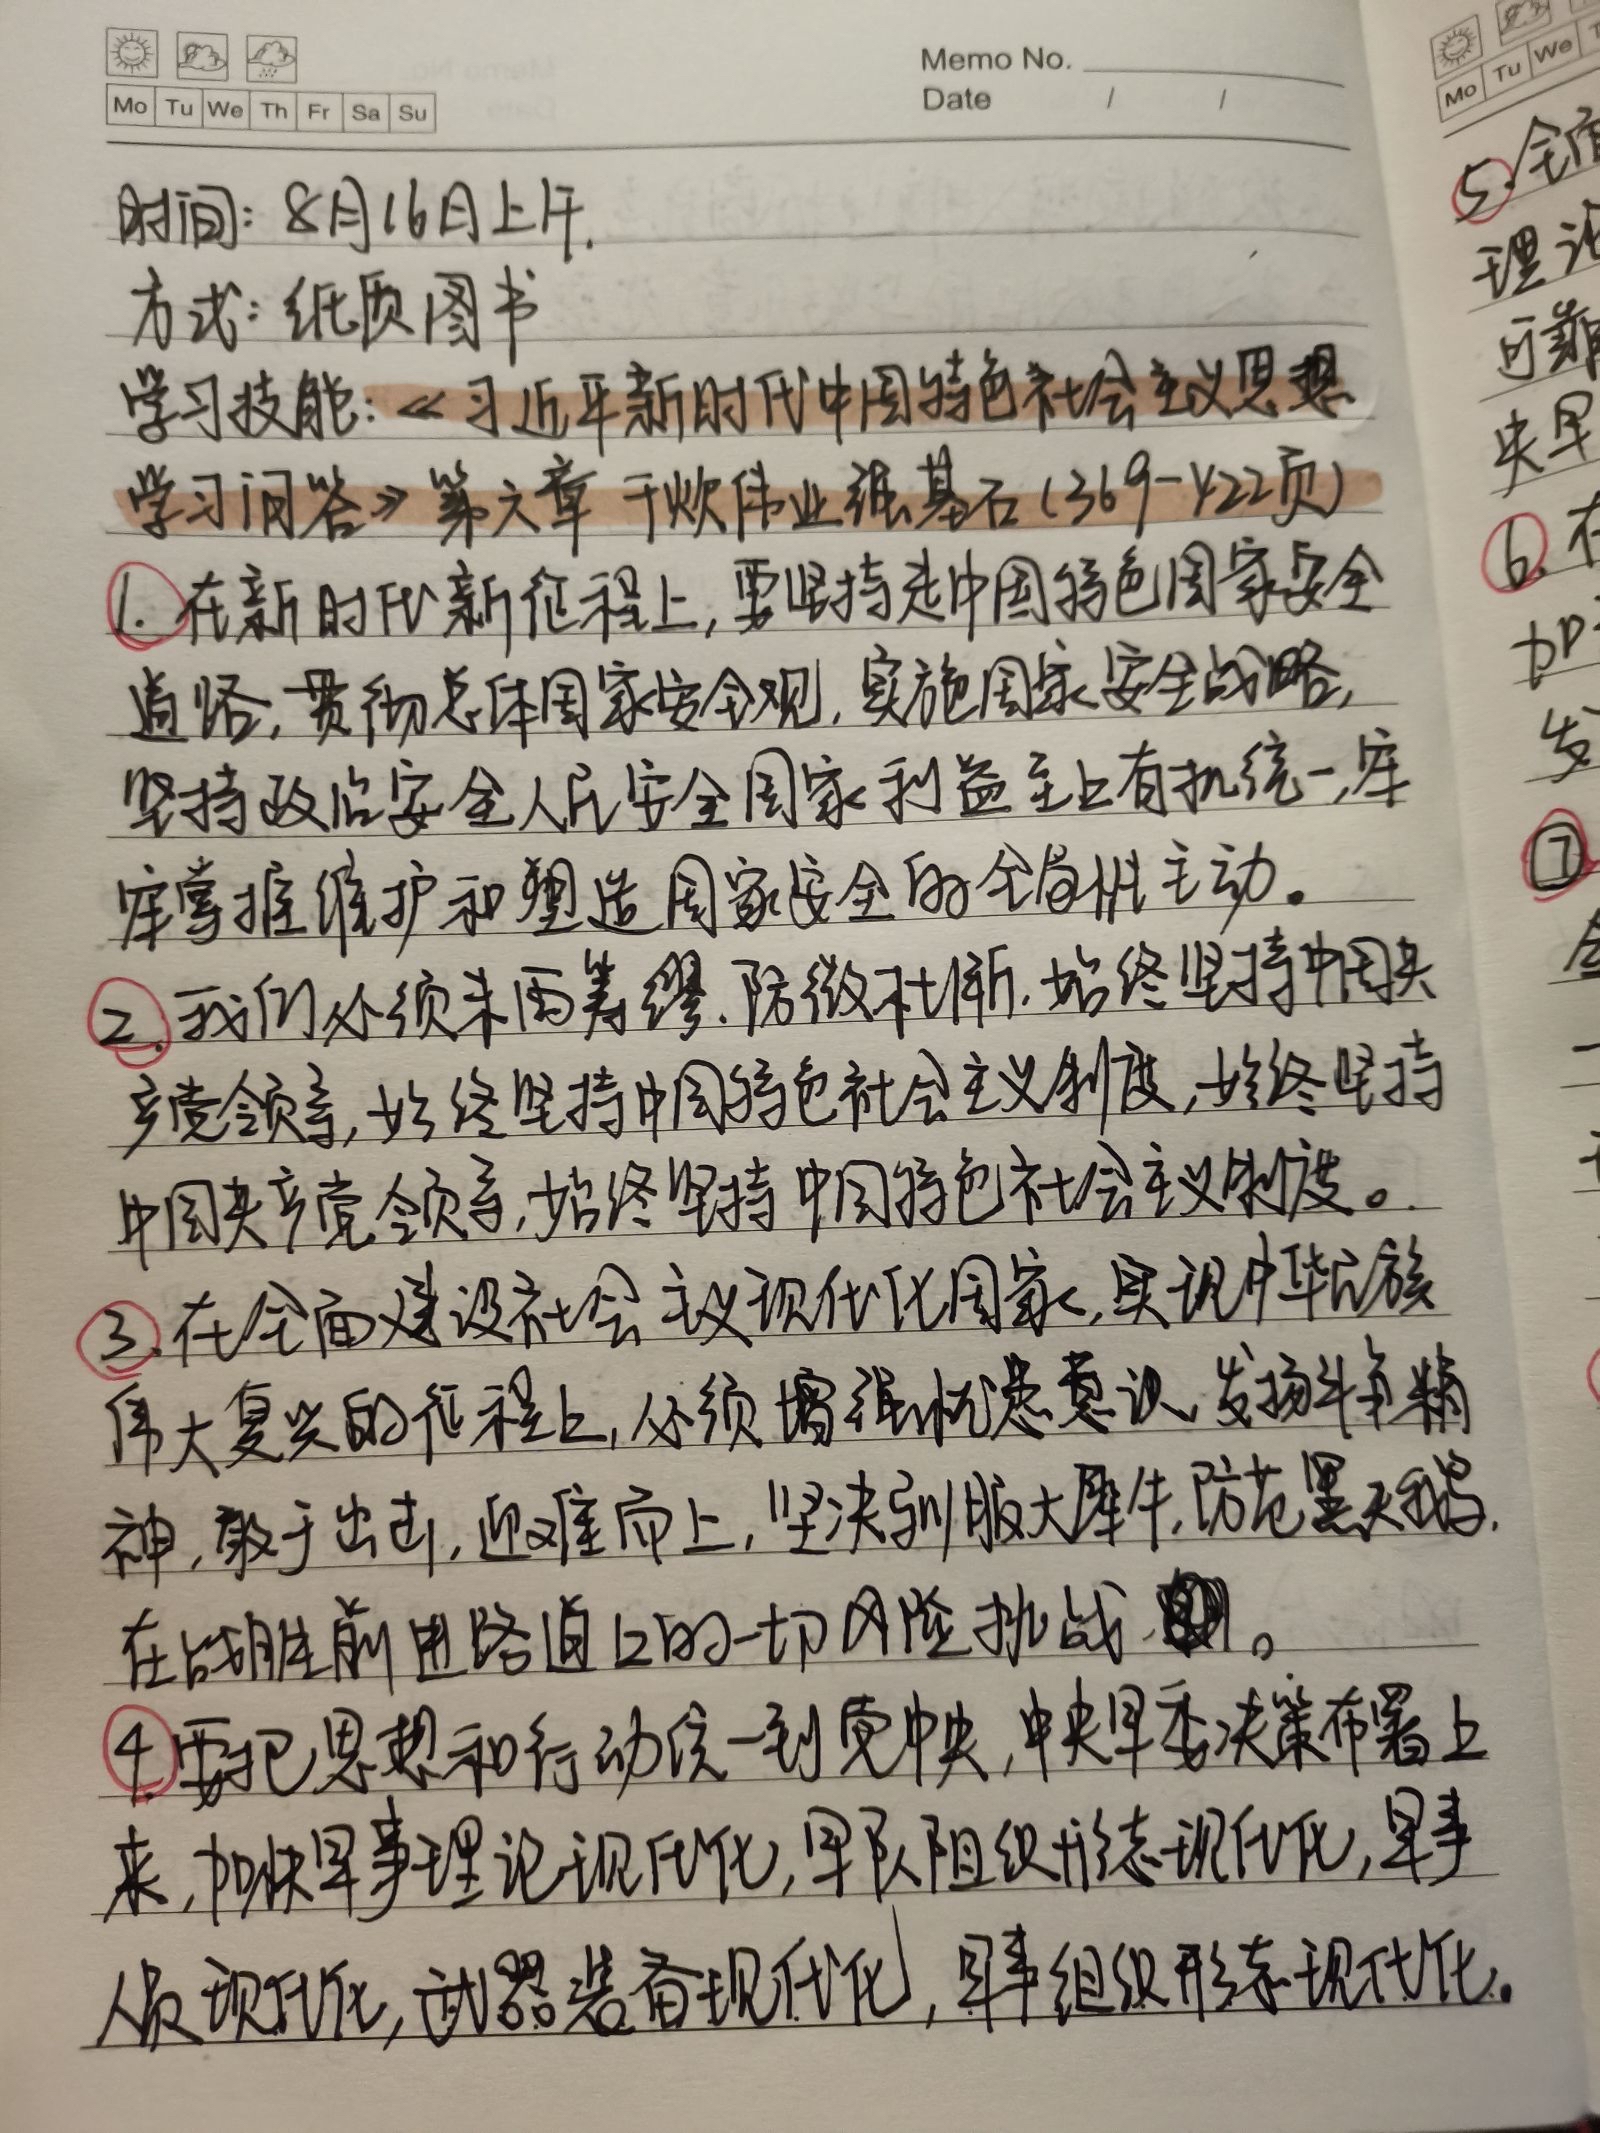 Memo No.
Mo Tu We Th Fr Sa Su
Date / /
时间:8月16日上午.
方式:纸质图书
学习技能:《习近平新时代中国特色社会主义思想
学习问答》第六章 千秋伟业强基石(369-422页)
1.在新时代新征程上,要坚持走中国特色国家安全
道路,贯彻总体国家安全观,实施国家安全战略,
坚持政治安全人民安全国家利益至上有机统一,牢
牢掌握维护和塑造国家安全的全局性主动。
2.我们必须未雨筹缪.防微杜渐.始终坚持中国共
产党领导,始终坚持中国特色社会主义制度,始终坚持
中国共产党领导,始终坚持中国特色社会主义制度。
3.在全面建设社会主义现代化国家,实现中华民族
伟大复兴的征程上,必须增强忧患意识,发扬斗争精
神,敢于出击,迎难而上,坚决驯服大犀牛,防范黑天鹅,
在战胜前进路道上的一切风险挑战。
4.要把思想和行动统一到党中央,中央军委决策布署上
来,加快军事理论现代化,军队组织形态现代化,军事
人员现代化,武器装备现代化,军事组织形态现代化。
Mo Tu We
5.全面
理论
央军
6.在
加
发
7